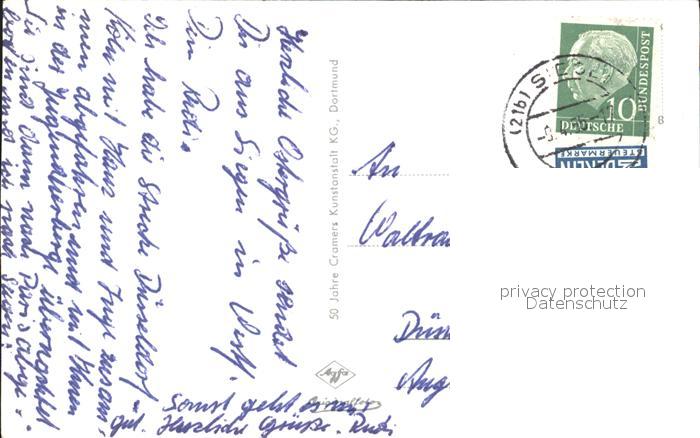 Herzliche Ostergrüße sendet
Dir aus Siegen in Westf.
Dein Rudi
Ich habe die Strecke Düsseldorf
Köln mit Hans und Inge zusam-
men abgefahren und mit Ihnen
in der Jugendherberge übernachtet
Sie sind dann nach Paris abge-
und wir nach Siegen.
Sonst geht es mir
gut. Herzliche Grüße. Rudi
50 Jahre Cramers Kunstanstalt KG., Dortmund
Agfa
An
Waltrau
Düss
Aug
(21b) SIEGEN
10
DEUTSCHE
BUNDESPOST
BERLIN
STEUERMARKE
B
privacy protection
Datenschutz